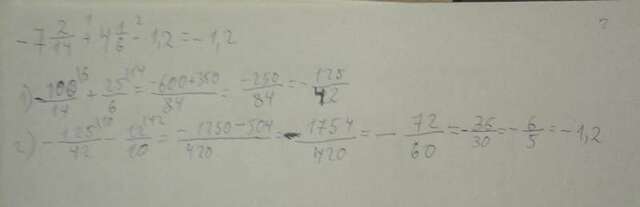 -7 2/14 + 4 1/6 - 1,2 = -1,2
1) -100/14 + 25/6 = -600+350/84 = -250/84 = -125/42
2) -125/42 - 12/10 = -1250-504/420 = -1754/420 = -72/60 = -36/30 = -6/5 = -1,2